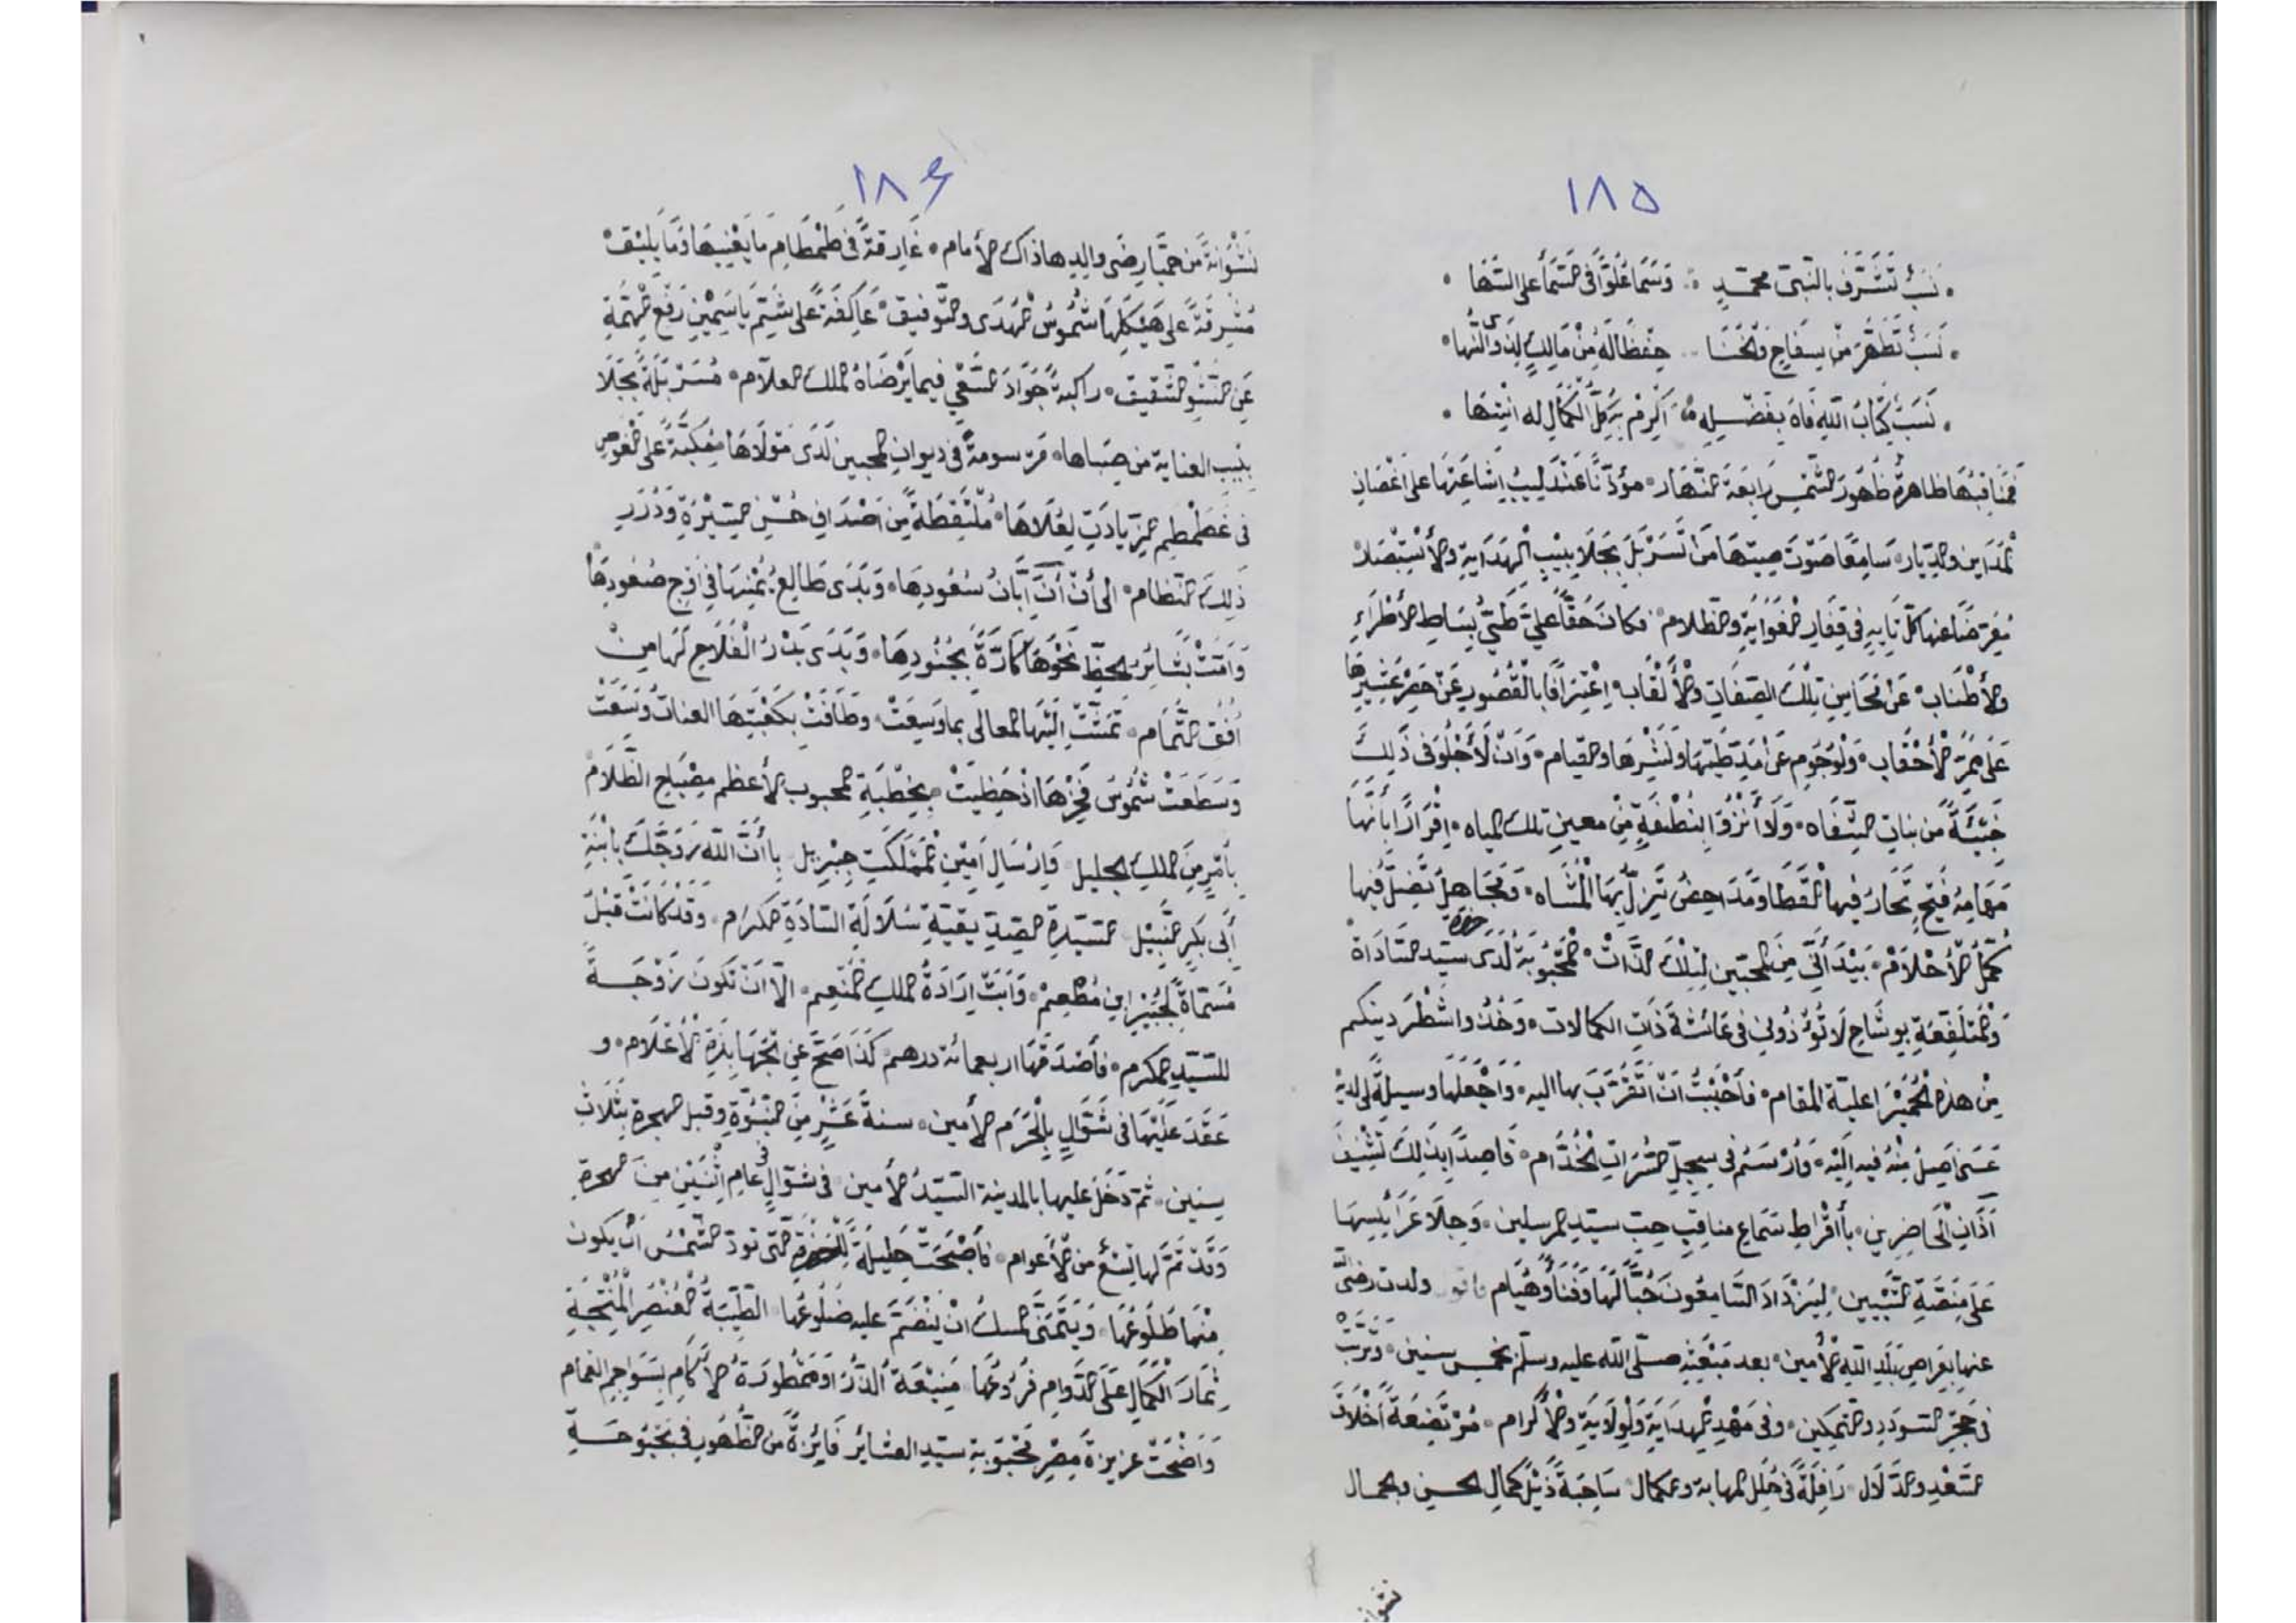 ١٨٥
نسب تشرف بالنبي محمد وسما علوا في السما على السها
نسب تطهر من سفاح والخنا حفظا له من مالك لذوى النها
نسب كتاب الله فاه بفضله أكرم بكل الكمال له انتها
فمناقبها ظاهرة ظهور الشمس رابعة النهار مؤذنا عندليب اشاعتها على اغصان
المداين والديار سامعا صوت صيتها من تسربل بجلابيب الهداية والأستبصار
معرضا عنها كل تايه في قفار الغواية والظلام فكان حقا علي طي بساط الأطراء
والأطناب عن محاسن تلك الصفات والألقاب اعترافا بالقصور عن حصر عشيرها
على ممر الأحقاب ولوجوم عن مد طيتها ونشرها والقيام وأن لا أجلو في ذلك
خبيئة من بنات الشفاه ولا أنزو بنطفة من معين تلك المياه اقرارا بأنها
مهامه فيح تحار فيها القطا ومداحض تزل بها المشاه ومجاهل تضل فيها
كمل الأحلام بيد أني من المحبين لتلك الذات المحبوبة لدى حضرة سيد السادات
والمتلفعة بوشاح لا تؤذوني في عائشة ذات الكمالات وخذوا شطر دينكم
من هذه الحميرا علية المقام فأحببت أن أتقرب بها اليه وأجعلها وسيلة لى لديه
عسى اصل منه فيه اليه وأرسم في سجل الخدام قاصدا بذلك تشنيف
آذان الحاضرين بأقراط سماع مناقب حب سيد المرسلين وجلا عرايسها
على منصة التبيين ليزداد السامعون حبا لها وفناً وهيام ولدت رضى الله
عنها بعراص بلد الله الأمين بعد مبعثه صلى الله عليه وسلم بخمس سنين وتربت
في حجر السودد والتمكين وفى مهد الهداية والولاية والأكرام مرتضعة أخلاف
السعد والدلال رافلة في حلل المهابة والكمال ساحبة ذيل كمال الحسن والجمال
نشوانة
١٨٦
نشوانة من حميا رضى والدها ذاك الأمام غارقة في طمطام ما يعنيها وما يليق
مشرقة على هيكلها شموس الهدى والتوفيق عاكفة على شم ياسمين رفع الهمة
عن النشو الشقيق راكبة جواد السعي فيما يرضاه الملك العلام مسربلة بجلا
بيب العناية من صباها مرسومة في ديوان المحبين لدى مولاها منكبة على الغوص
في غطمطم الزيادت لعلاها ملتقطة من اصداف حسن السيرة ودرر
ذلك النظام الى أن أن ابان سعودها وبدى طالع يمنها في اوج صعودها
وأمت بشائر الحظ نحوها كارة بجنودها وبدى بدر الفلاح لها من
أفق التمام تمشت اليها المعالى بما وسعت وطافت بكعبتها العنات وسعت
وسطعت شموس فخرها اذ حظيت بخطبة المحبوب الأعظم مصباح الظلام
بأمر من الملك الجليل وارسال امين المملكت جبريل بأن الله زوجك بابنة
أبى بكر النبيل السيدة الصديقة بقية سلالة السادة الكرام وقد كانت قبل
مسماة لجبير ابن مطعم وأبت ارادة الملك المنعم الا ان تكون زوجة
للسيد المكرم فأصدقها اربعمائة درهم كذا صح عن الأعلام و
عقد عليها في شوال بالحرم الأمين سنة عشر من النبوة وقبل الهجرة بثلاث
سنين ثم دخل عليها بالمدينة السيد الأمين في شوال في عام اثنين من الهجرة
وقد تم لها تسع من الأعوام فأصبحت حليلة للحضرة حتى تود الشمس أن يكون
منها طلوعها ويتمنى المسك ان ينضم عليه ضلوعها الطيبة العنصر المنتجة
ثمار الكمال على الدوام فروعها منيعة الذرا وممطورة الأكام بسواجم الغمام
وأضحت عزيزة مصر محبوبة سيد العشائر فايزة من الظهور في بحبوحة